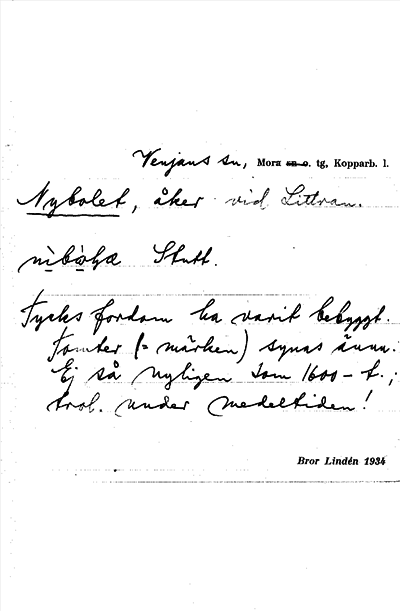 Venjans sn, Mora sn o. tg, Kopparb. l.
Nybolet, åker vid Littran.
Slutt.
Tycks fordom ha varit bebyggt.
Tomter (= märken) synas ännu.
Ej så nyligen som 1600-t.;
trol. under medeltiden!
Bror Lindén 1934